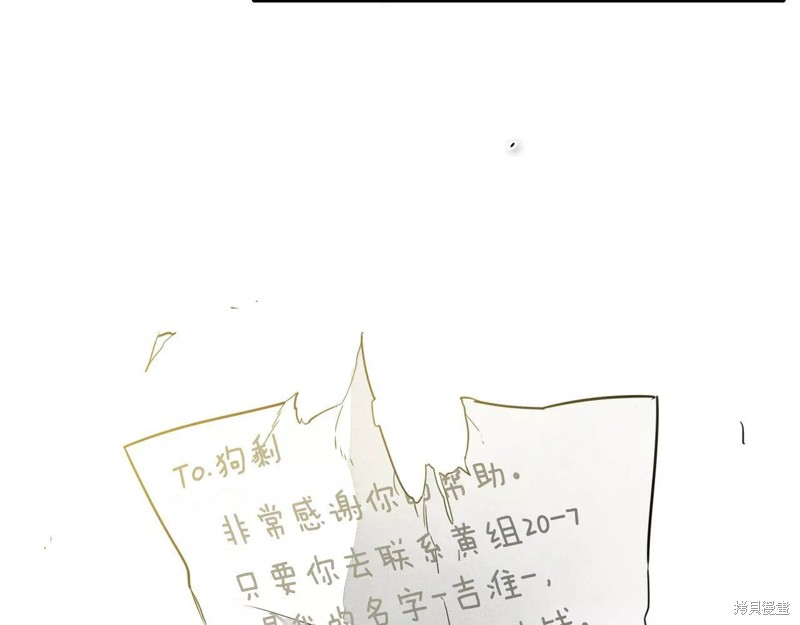 To.狗剩
非常感谢你的帮助.
只要你去联系黄组20-7
的名字-吉淮-,
钱.
拷貝漫畫